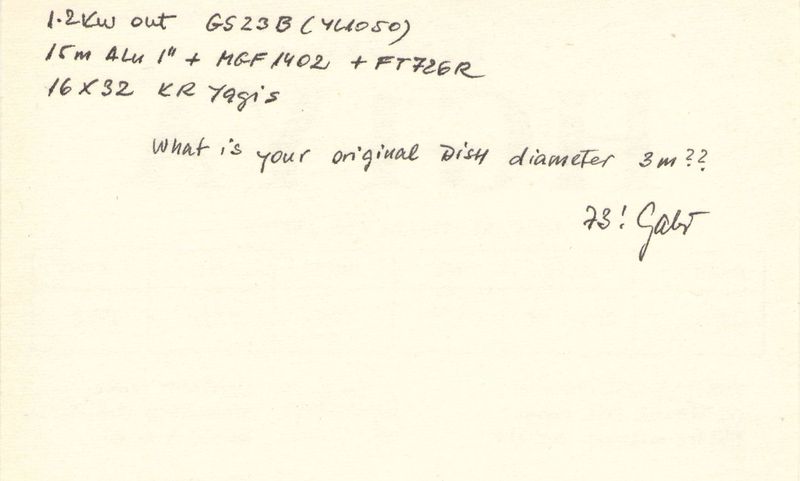 1.2KW out GS23B (YL1050)
15m ALu 1" + MGF1402 + FT726R
16X32 KR Yagis
What is your original DISH diameter 3m??
73! Gabi